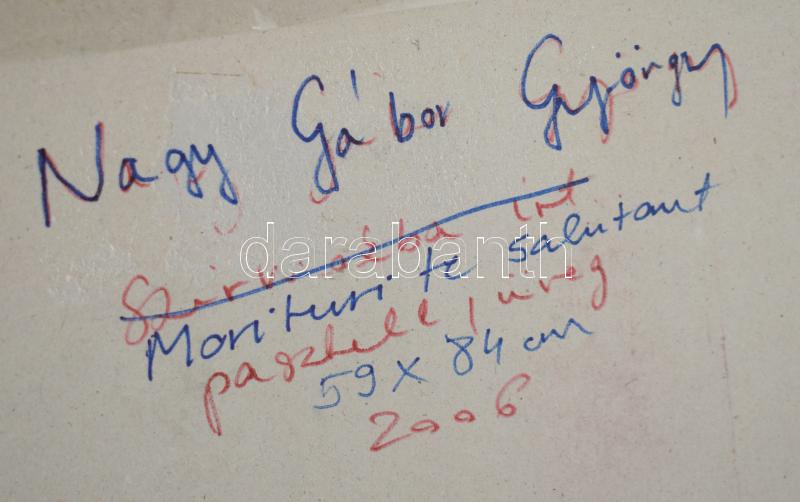 Nagy Gábor György
írt
darabanth
Morituri te salutant
pasztell, üveg
59 x 84 cm
2006